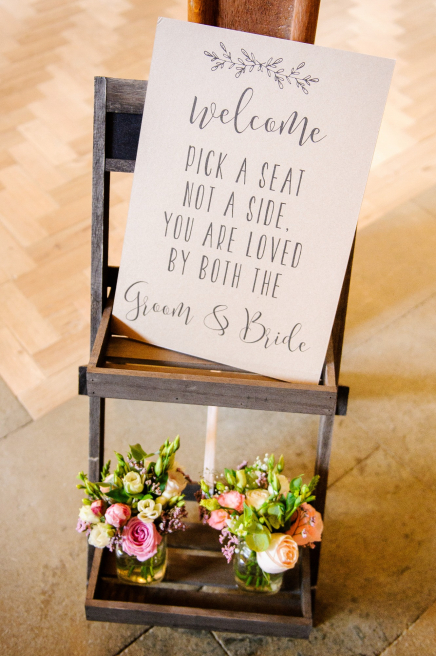 welcome
PICK A SEAT
NOT A SIDE,
YOU ARE LOVED
BY BOTH THE
Groom & Bride